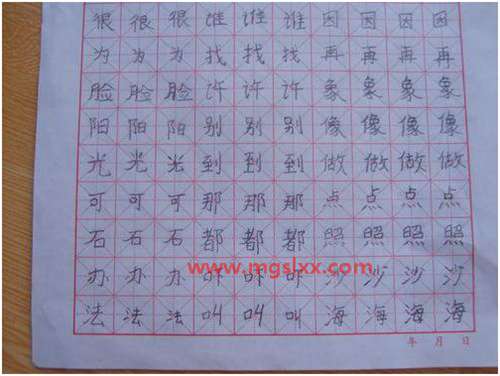 很很很谁谁谁因因因因
为为为找找找再再再再
脸脸脸许许许象象象象
阳阳阳别别别像像像像
光光光到到到做做做做
可可可那那那点点点点
石石石都都都照照照照
www.mgslxx.com
办办办吓吓吓沙沙沙沙
法法法叫叫叫海海海海
年 月 日